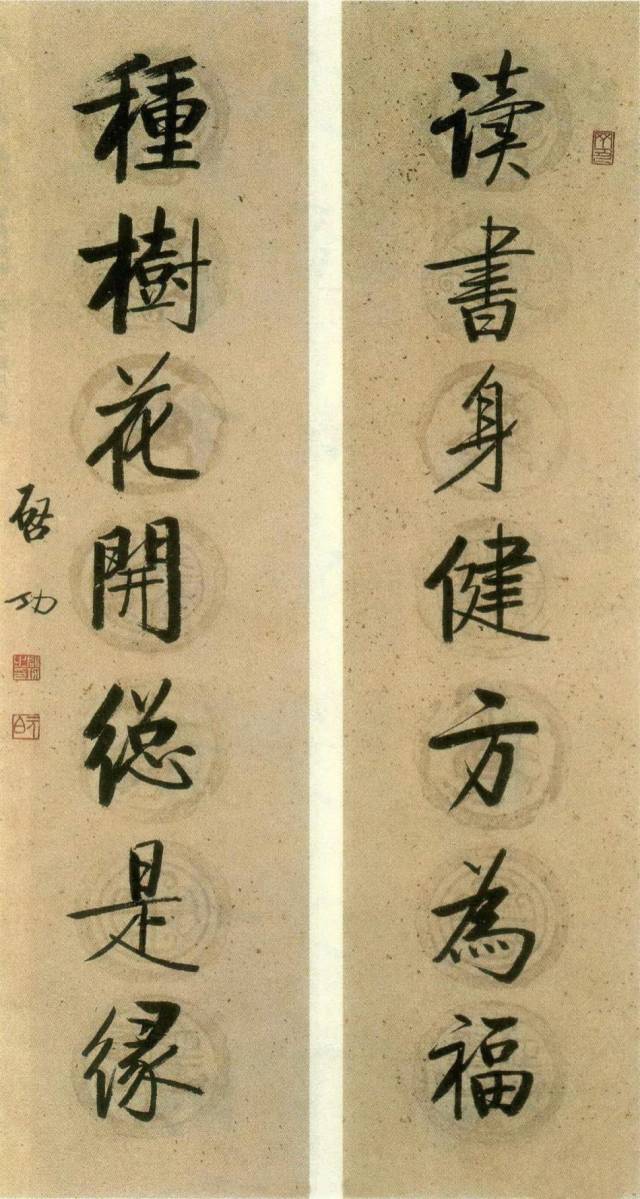 读书身健方为福
種樹花開緫是缘
啓功